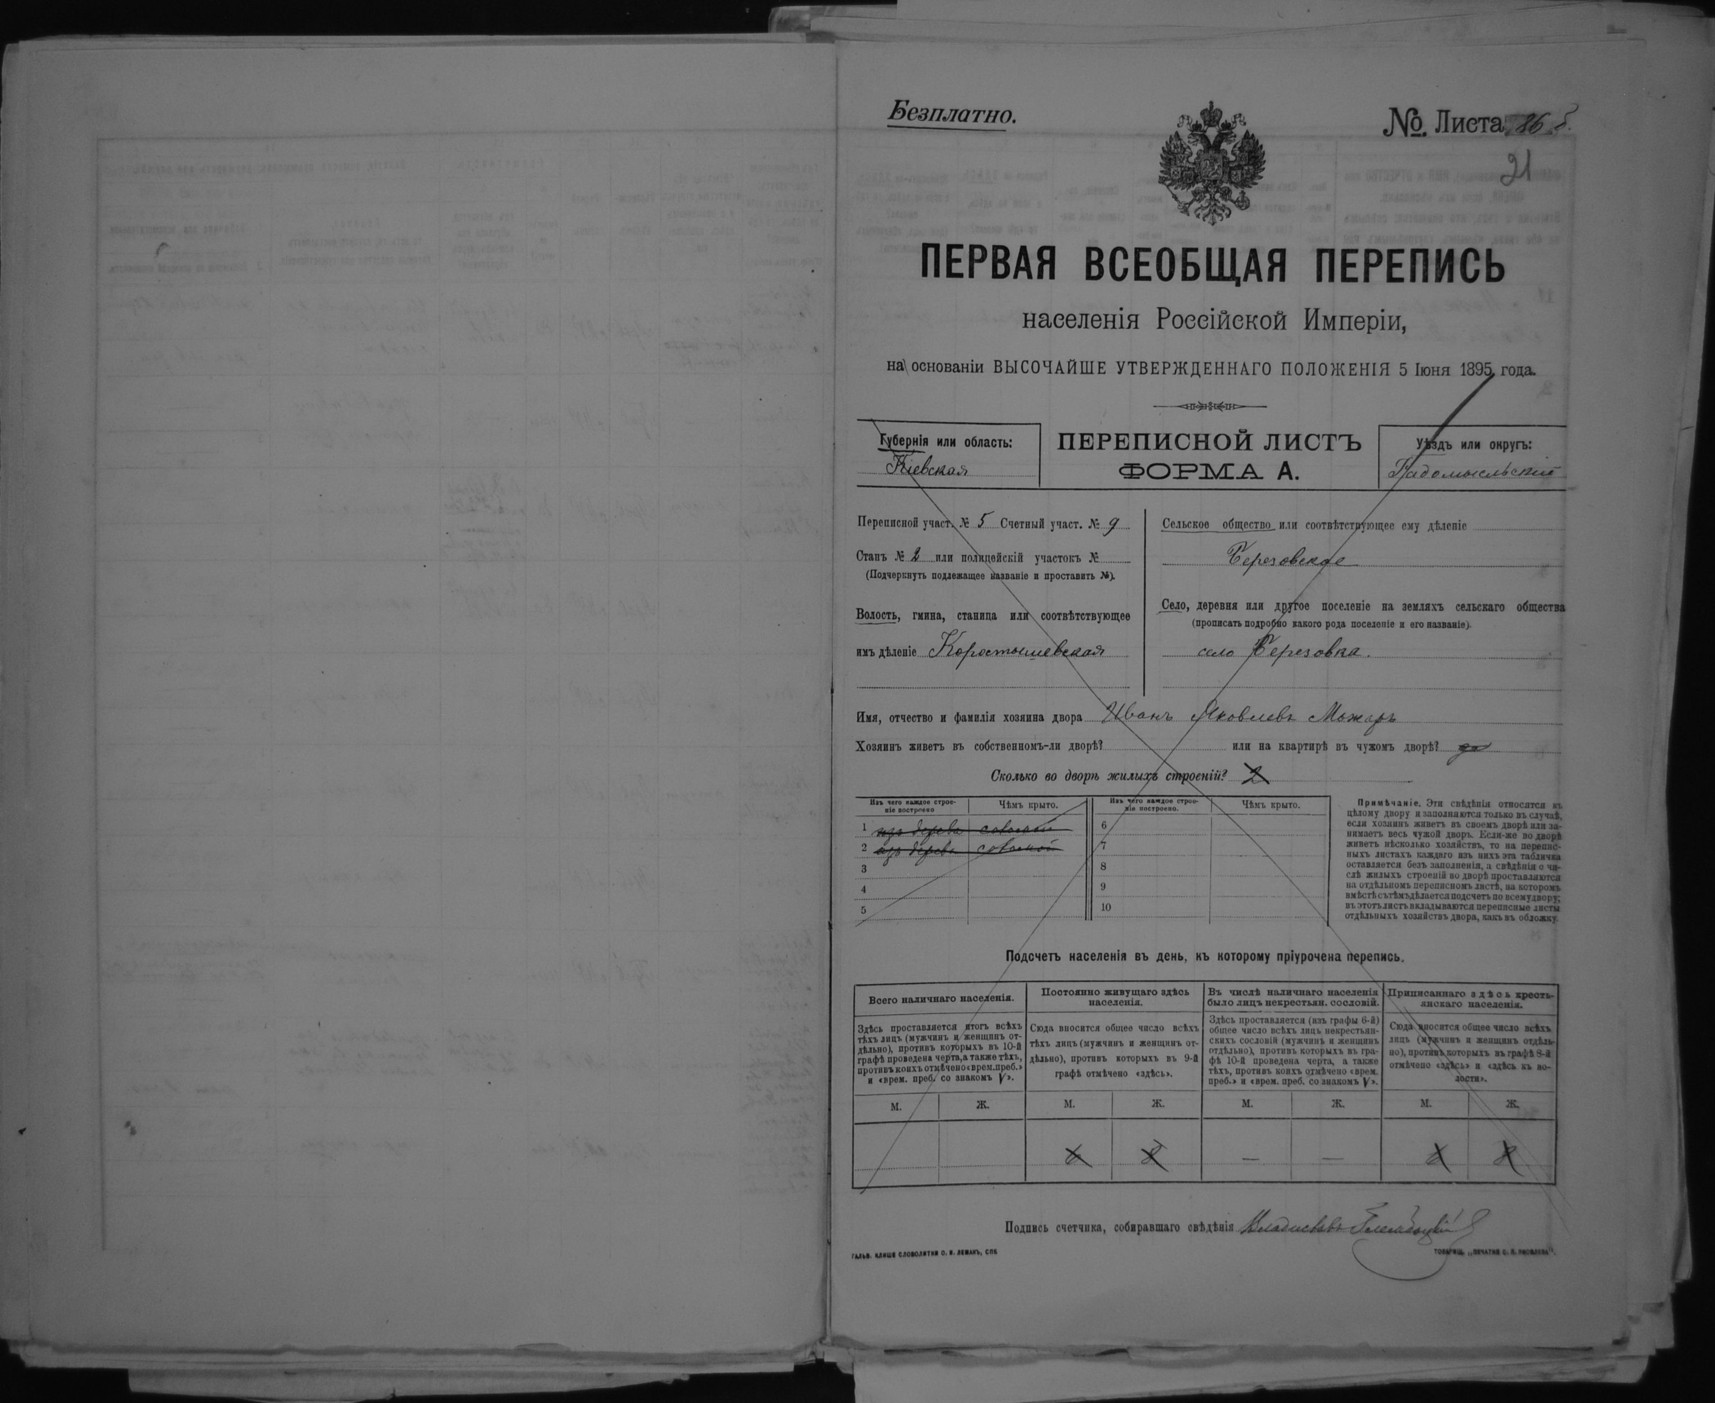 Безплатно.
№ Листа 26 б.
21
ПЕРВАЯ ВСЕОБЩАЯ ПЕРЕПИСЬ
населенія Россійской Имперіи,
на основаніи ВЫСОЧАЙШЕ УТВЕРЖДЕННАГО ПОЛОЖЕНІЯ 5 Іюня 1895 года.
Губернія или область:
Кіевская
ПЕРЕПИСНОЙ ЛИСТЪ
ФОРМА А.
Уѣздъ или округъ:
Радомысльскій
Переписной участ. № 5 Счетный участ. № 9
Станъ № 2 или полицейскій участокъ №
(Подчеркнуть подлежащее названіе и проставить №).
Волость, гмина, станица или соотвѣтствующее
имъ дѣленіе Коростышевская
Сельское общество или соотвѣтствующее ему дѣленіе
Березовское
Село, деревня или другое поселеніе на земляхъ сельскаго общества
(прописать подробно какого рода поселеніе и его названіе).
село Березовка.
Имя, отчество и фамилія хозяина двора Иванъ Яковлевъ Можаръ
Хозяинъ живетъ въ собственномъ-ли дворѣ? или на квартирѣ въ чужомъ дворѣ? да
Сколько во дворѣ жилыхъ строеній? 2
Изъ чего каждое строеніе построено
Чѣмъ крыто.
Изъ чего каждое строеніе построено.
Чѣмъ крыто.
1 изъ дерева соломой
2 изъ дерева соломой
3
4
5
6
7
8
9
10
Примѣчаніе. Эти свѣдѣнія относятся къ
цѣлому двору и заполняются только въ случаѣ,
если хозяинъ живетъ въ своемъ дворѣ или за-
нимаетъ весь чужой дворъ. Если-же во дворѣ
живетъ нѣсколько хозяйствъ, то на перепис-
ныхъ листахъ каждаго изъ нихъ эта табличка
оставляется безъ заполненія, а свѣдѣнія о чи-
слѣ жилыхъ строеній во дворѣ проставляются
на отдѣльномъ переписномъ листѣ, на которомъ
вмѣстѣ съ тѣмъ дѣлается подсчетъ по всему двору;
въ этотъ листъ вкладываются переписные листы
отдѣльныхъ хозяйствъ двора, какъ въ обложку.
Подсчетъ населенія въ день, къ которому пріурочена перепись.
Всего наличнаго населенія.
Здѣсь проставляется итогъ всѣхъ
тѣхъ лицъ (мужчинъ и женщинъ от-
дѣльно), противъ которыхъ въ 10-й
графѣ проведена черта, а также тѣхъ,
противъ коихъ отмѣчено «врем. преб.»
и «врем. преб. со знакомъ V».
Постоянно живущаго здѣсь
населенія.
Сюда вносится общее число всѣхъ
тѣхъ лицъ (мужчинъ и женщинъ от-
дѣльно), противъ которыхъ въ 9-й
графѣ отмѣчено «здѣсь».
Въ числѣ наличнаго населенія
было лицъ некрестьян. сословій.
Здѣсь проставляется (изъ графы 6-й)
общее число всѣхъ лицъ некрестьян-
скихъ сословій (мужчинъ и женщинъ
отдѣльно), противъ которыхъ въ гра-
фѣ 10-й проведена черта, а также
тѣхъ, противъ коихъ отмѣчено «врем.
преб.» и «врем. преб. со знакомъ V».
Приписаннаго здѣсь кресть-
янскаго населенія.
Сюда вносится общее число всѣхъ
лицъ (мужчинъ и женщинъ отдѣль-
но), противъ которыхъ въ графѣ 8-й
отмѣчено «здѣсь» и «здѣсь въ во-
лости».
М. Ж. М. Ж. М. Ж. М. Ж.
— —
Подпись счетчика, собиравшаго свѣдѣнія Владиславъ
ГАЛЬВ. КЛИШЕ СЛОВОЛИТНИ О. И. ЛЕМАНЪ, СПБ
ТОВАРИЩ. „ПЕЧАТНЯ С. П. ЯКОВЛЕВА".